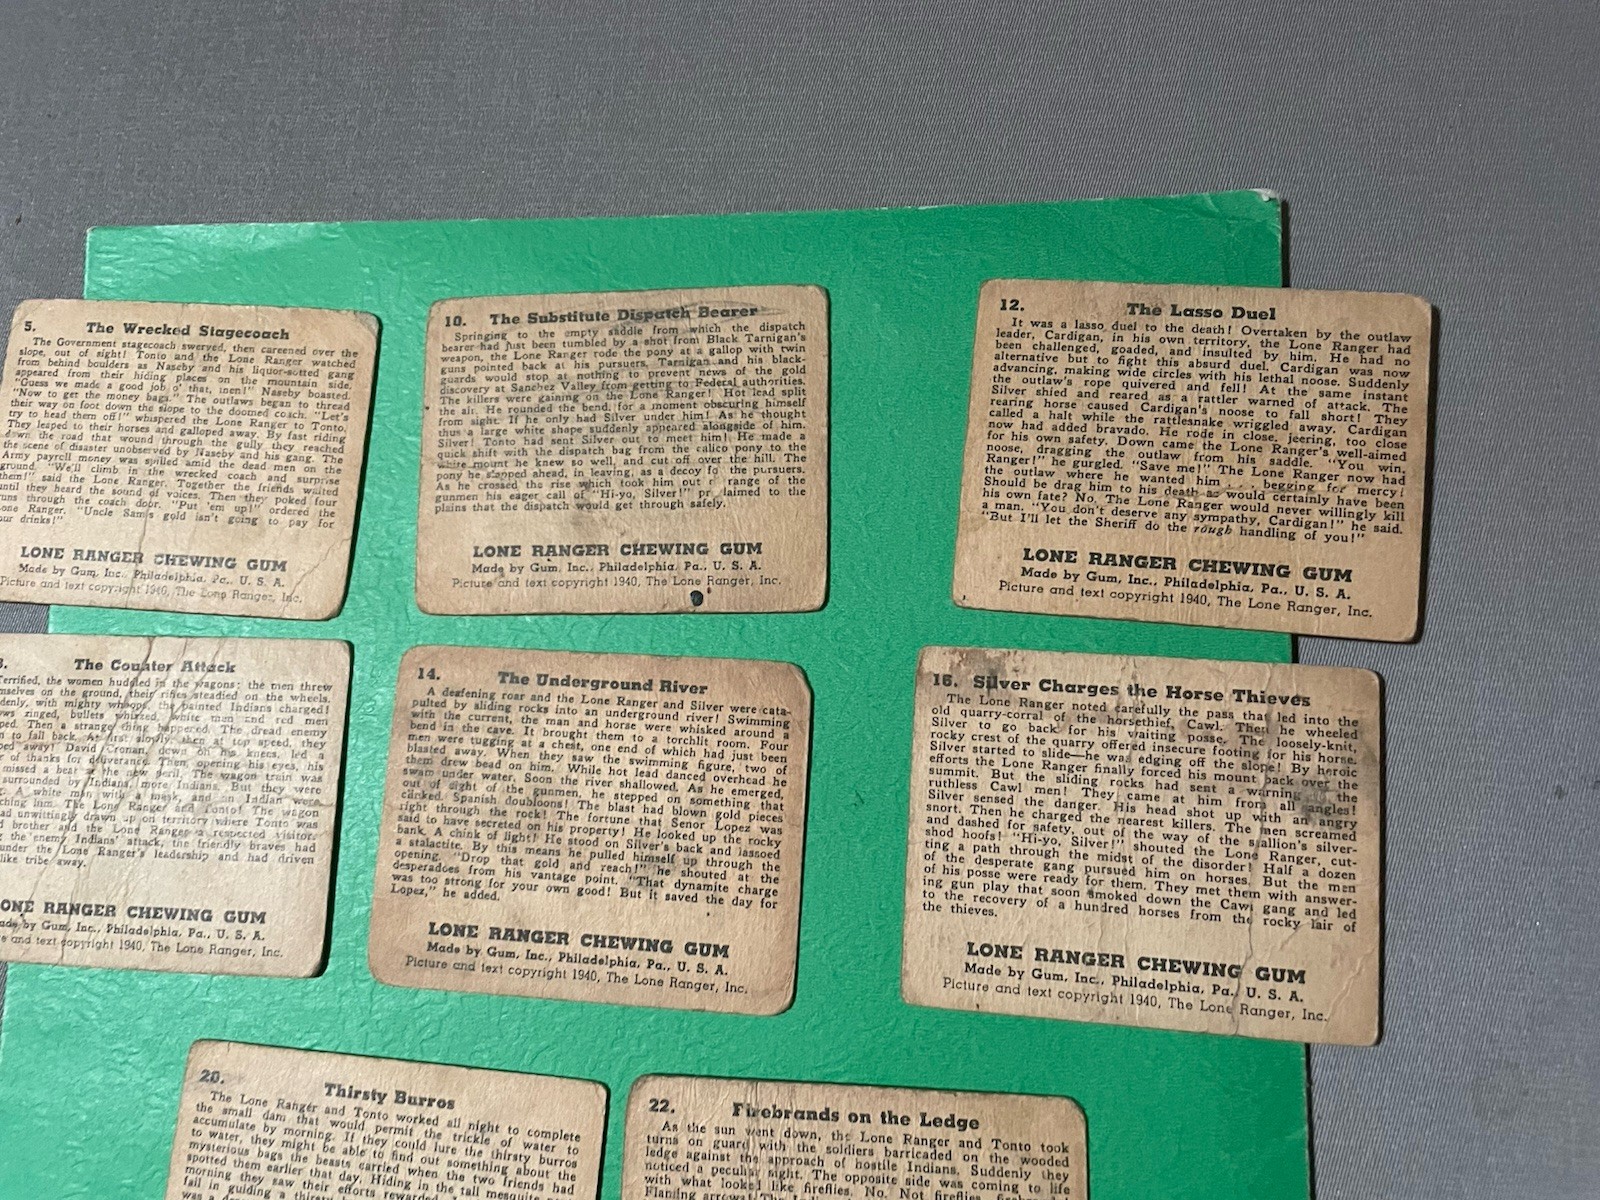 5. The Wrecked Stagecoach
The Government stagecoach swerved, then careened over the
slope, out of sight! Tonto and the Lone Ranger watched
from behind boulders as Naseby and his liquor-sotted gang
appeared from their hiding places on the mountain side.
"Guess we made a good job o' that, men!" Naseby boasted.
"Now to get the money bags." The outlaws began to thread
their way on foot down the slope to the doomed coach. "Let's
try to head them off!" whispered the Lone Ranger to Tonto.
They leaped to their horses and galloped away. By fast riding
down the road that wound through the gully they reached
the scene of disaster unobserved by Naseby and his gang. The
Army payroll money was spilled amid the dead men on the
ground. "We'll climb in the wrecked coach and surprise
them!" said the Lone Ranger. Together the friends waited
until they heard the sound of voices. Then they poked four
guns through the coach door. "Put 'em up!" ordered the
Lone Ranger. "Uncle Sam's gold isn't going to pay for
your drinks!"
LONE RANGER CHEWING GUM
Made by Gum, Inc., Philadelphia, Pa., U. S. A.
Picture and text copyright 1940, The Lone Ranger, Inc.
10. The Substitute Dispatch Bearer
Springing to the empty saddle from which the dispatch
bearer had just been tumbled by a shot from Black Tarnigan's
weapon, the Lone Ranger rode the pony at a gallop with twin
guns pointed back at his pursuers. Tarnigan and his black-
guards would stop at nothing to prevent news of the gold
discovery at Sanchez Valley from getting to Federal authorities.
The killers were gaining on the Lone Ranger! Hot lead split
the air. He rounded the bend, for a moment obscuring himself
from sight. If he only had Silver under him! As he thought
thus a large white shape suddenly appeared alongside of him.
Silver! Tonto had sent Silver out to meet him! He made a
quick shift with the dispatch bag from the calico pony to the
white mount he knew so well, and cut off over the hill. The
pony he slapped ahead, in leaving, as a decoy fo the pursuers.
As he crossed the rise which took him out range of the
gunmen his eager call of "Hi-yo, Silver!" pr laimed to the
plains that the dispatch would get through safely.
LONE RANGER CHEWING GUM
Made by Gum, Inc., Philadelphia, Pa., U. S. A.
Picture and text copyright 1940, The Lone Ranger, Inc.
12. The Lasso Duel
It was a lasso duel to the death! Overtaken by the outlaw
leader, Cardigan, in his own territory, the Lone Ranger had
been challenged, goaded, and insulted by him. He had no
alternative but to fight this absurd duel. Cardigan was now
advancing, making wide circles with his lethal noose. Suddenly
the outlaw's rope quivered and fell! At the same instant
Silver shied and reared as a rattler warned of attack. The
rearing horse caused Cardigan's noose to fall short! They
called a halt while the rattlesnake wriggled away. Cardigan
now had added bravado. He rode in close, jeering, too close
for his own safety. Down came the Lone Ranger's well-aimed
noose, dragging the outlaw from his saddle. "You win,
Ranger!" he gurgled. "Save me!" The Lone Ranger now had
the outlaw where he wanted him . . . begging for mercy!
Should be drag him to his death as would certainly have been
his own fate? No. The Lone Ranger would never willingly kill
a man. "You don't deserve any sympathy, Cardigan!" he said.
"But I'll let the Sheriff do the rough handling of you!"
LONE RANGER CHEWING GUM
Made by Gum, Inc., Philadelphia, Pa., U. S. A.
Picture and text copyright 1940, The Lone Ranger, Inc.
The Counter Attack
Terrified, the women huddled in the wagons; the men threw
mselves on the ground, their rifles steadied on the wheels.
denly, with mighty whoops, the painted Indians charged!
ows ringed, bullets whizzed, white men and red men
ped. Then a strange thing happened. The dread enemy
n to fall back. At first slowly, then at top speed, they
ped away! David Cronan, down on his knees, led a
r of thanks for deliverance. Then, opening his eyes, his
missed a beat at the new peril. The wagon train was
surrounded by Indians, more Indians. But they were
A white man with a mask, and an Indian were
ching him. The Lone Ranger and Tonto! The wagon
ad unwittingly drawn up on territory where Tonto was
d brother and the Lone Ranger a respected visitor.
g the enemy Indians' attack, the friendly braves had
under the Lone Ranger's leadership and had driven
like tribe away.
ONE RANGER CHEWING GUM
ade by Gum, Inc., Philadelphia, Pa., U. S. A.
e and text copyright 1940, The Lone Ranger, Inc.
14. The Underground River
A deafening roar and the Lone Ranger and Silver were cata-
pulted by sliding rocks into an underground river! Swimming
with the current, the man and horse were whisked around a
bend in the cave. It brought them to a torchlit room. Four
men were tugging at a chest, one end of which had just been
blasted away. When they saw the swimming figure, two of
them drew bead on him. While hot lead danced overhead he
swam under water. Soon the river shallowed. As he emerged,
out of sight of the gunmen, he stepped on something that
clinked. Spanish doubloons! The blast had blown gold pieces
right through the rock! The fortune that Senor Lopez was
said to have secreted on his property! He looked up the rocky
bank. A chink of light! He stood on Silver's back and lassoed
a stalactite. By this means he pulled himself up through the
opening. "Drop that gold and reach!" he shouted at the
desperadoes from his vantage point. "That dynamite charge
was too strong for your own good! But it saved the day for
Lopez," he added.
LONE RANGER CHEWING GUM
Made by Gum, Inc., Philadelphia, Pa., U. S. A.
Picture and text copyright 1940, The Lone Ranger, Inc.
16. Silver Charges the Horse Thieves
The Lone Ranger noted carefully the pass that led into the
old quarry-corral of the horsethief, Cawl. Then he wheeled
Silver to go back for his waiting posse. The loosely-knit,
rocky crest of the quarry offered insecure footing for his horse.
Silver started to slide—he was edging off the slope! By heroic
efforts the Lone Ranger finally forced his mount back over the
summit. But the sliding rocks had sent a warning to the
ruthless Cawl men! They came at him from all angles!
Silver sensed the danger. His head shot up with an angry
snort. Then he charged the nearest killers. The men screamed
and dashed for safety, out of the way of the stallion's silver-
shod hoofs! "Hi-yo, Silver!" shouted the Lone Ranger, cut-
ting a path through the midst of the disorder! Half a dozen
of the desperate gang pursued him on horses. But the men
of his posse were ready for them. They met them with answer-
ing gun play that soon smoked down the Cawl gang and led
to the recovery of a hundred horses from the rocky lair of
the thieves.
LONE RANGER CHEWING GUM
Made by Gum, Inc., Philadelphia, Pa., U. S. A.
Picture and text copyright 1940, The Lone Ranger, Inc.
20. Thirsty Burros
The Lone Ranger and Tonto worked all night to complete
the small dam that would permit the trickle of water to
accumulate by morning. If they could lure the thirsty burros
to water, they might be able to find out something about the
mysterious bags the beasts carried when the two friends had
spotted them earlier that day. Hiding in the tall mesquite
morning they saw their efforts rewarded.
fail in guiding a thirsty
was a
22. Firebrands on the Ledge
As the sun went down, the Lone Ranger and Tonto took
turns on guard with the soldiers barricaded on the wooded
ledge against the approach of hostile Indians. Suddenly they
noticed a peculiar sight. The opposite side was coming to life
with what looked like fireflies. No. Not fireflies,
Flaming arrows! The